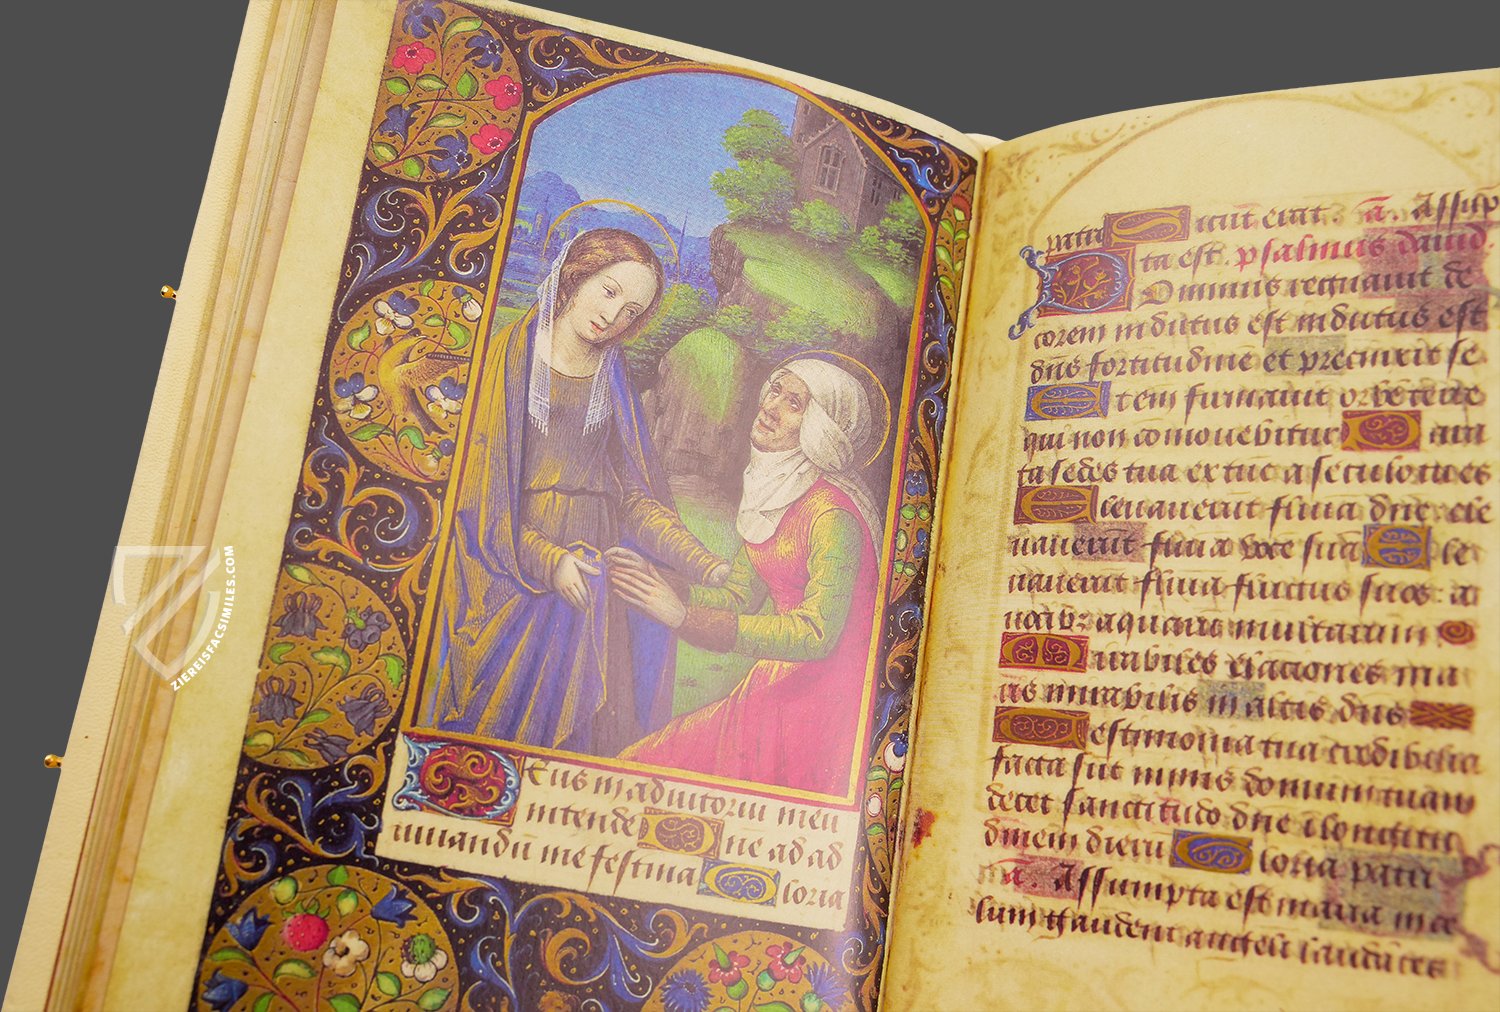 Eus in adiutoriū meū
intende D ne ad ad
iuuandū me festina G loria
patri S icut erat. a. Assūp
ta est. psalmus dauid.
D Ominus regnauit de
corem indutus est indutus est
dn̄s fortitudinē et precinxit se.
E tem firmauit orbē terre
qui non cōmouebitur P ara
ta sedes tua ex tūc a seculo tu es
E leuauerūt flīna dn̄e. ele
uauerūt flīna vocē suā E le
uauerūt flīna fluctus suos: a
uocib₉ aquarū multarum
M irabiles elationes ma
ris mirabilis in altis dn̄s
T estimonia tua credibilia
facta sūt nimis domum tuam
decet sanctitudo dn̄e ī longitu
dinem dierū G loria patri
a. Assumpta est maria in ce
lum gaudent angeli laudātes
ZIEREISFACSIMILES.COM